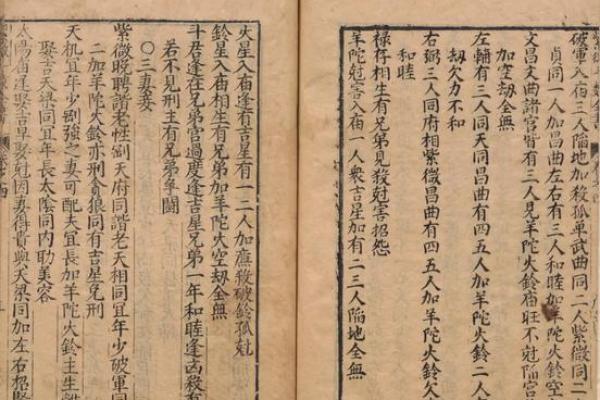 破軍入庙三人陥地加殺孤单武曲同二人紫微同二
貞同一人加昌曲左右有三人和睦加羊陀火鈴空
文昌文曲諸宮皆有三人見羊陀火鈴庙旺不尅陥宮
加空刼全無
左輔有三人同天同昌曲有四五人加羊陀火鈴二人
刼欠力不和
右弼三人同府相紫微昌曲有四五人加羊陀火鈴欠
和睦
禄存相生有兄弟見殺尅害招怨
羊陀尅害入庙一人衆吉星加有二三人陥地全無
火星入庙逢有吉星有一二人加廉殺破鈴孤尅
鈴星入庙相生有兄弟加羊陀火空刼全無
斗君逢在兄弟宮過度逢吉星兄弟一年和睦逢凶殺有
若不見刑主有兄弟爭鬪
〇三妻妾
紫微晚聘諧老性剛天府同諧老天相同宜年少破軍同
二加羊陀火鈴亦刑貪狼同有吉星免刑
天机宜年少剛強之妻可配天宜長加羊陀火鈴主生離
娶吉天梁同宜年長太陰同内助美容
太陽庙逢娶吉早娶尅因妻得貴與天梁同加左右招賢